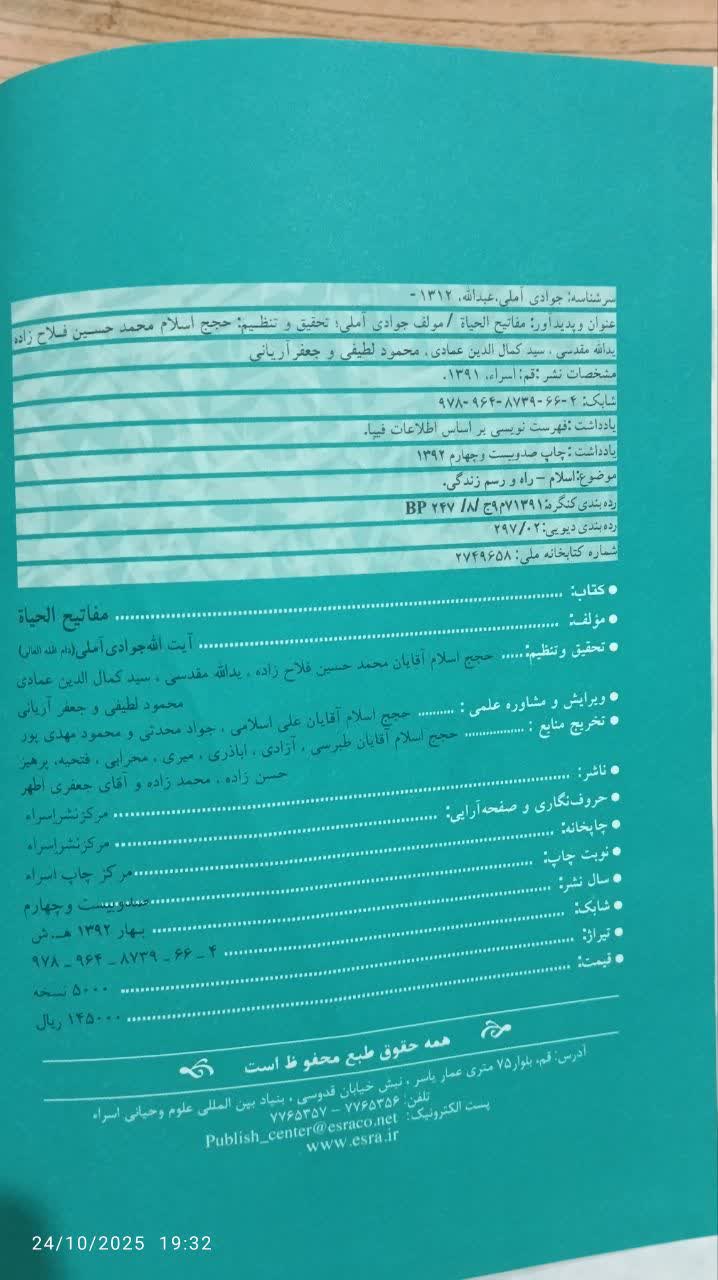 سرشناسه: جوادی آملی،عبدالله، ۱۳۱۲ -
عنوان وپدیدآور: مفاتیح الحیاة / مولف جوادی آملی؛ تحقیق و تنظـیم: حجج اسلام محمد حسـین فـلاح زاده
یدالله مقدسی ، سید کمال الدین عمادی، محمود لطیفی و جعفر آریانی
مشخصات نشر :قم: اسراء، ۱۳۹۱.
شابک: ۴-۶۶-۸۷۳۹-۹۶۴-۹۷۸
یادداشت :فهرست نویسی بر اساس اطلاعات فیپا.
یادداشت :چاپ صدوبیست وچهارم ۱۳۹۲
موضوع:اسلام – راه و رسم زندگی.
رده بندی کنگره: ۷۱۳۹۱م۹ج /۸/ ۲۴۷ BP
رده بندی دیویی: ۲۹۷/۰۲
شماره کتابخانه ملی: ۲۷۴۹۶۵۸
● کتاب: ........ مفاتیح الحیاة
● مؤلف: ........ آیت الله جوادی آملی(دام ظله العالی)
● تحقیق وتنظیم:..... حجج اسلام آقایان محمد حسین فلاح زاده ، یدالله مقدسی ، سید کمال الدین عمادی
محمود لطیفی و جعفر آریانی
● ویرایش و مشاوره علمی : .......... حجج اسلام آقایان علی اسلامی ، جواد محدثی و محمود مهدی پور
● تخریج منابع : ................ حجج اسلام آقایان طبرسی ، آزادی ، اباذری ، میری ، محرابی ، فتحیه، پرهیز
حسن زاده ، محمد زاده و آقای جعفری اطهر
● ناشر: ........ مرکزنشراسراء
● حروف‌نگاری و صفحه‌آرایی: ........ مرکزنشراسراء
● چاپخانه: ........ مرکز چاپ اسراء
● نوبت چاپ: ........ صدوبیست وچهارم
● سال نشر: ........ بهار ۱۳۹۲ هـ.ش
● شابک: ........ ۴ _ ۶۶ _ ۸۷۳۹ _ ۹۶۴ _ ۹۷۸
● تیراژ: ........ ۵۰۰۰ نسخه
● قیمت: ........ ۱۴۵۰۰۰ ریال
همه حقوق طبع محفوظ است
آدرس: قم، بلوار۷۵ متری عمار یاسر ، نبش خیابان قدوسی ، بنیاد بین المللی علوم وحیانی اسراء
تلفن: ۷۷۶۵۳۵۶ – ۷۷۶۵۳۵۷
پست الکترونیک: Publish_center@esraco.net
www.esra.ir
24/10/2025 19:32